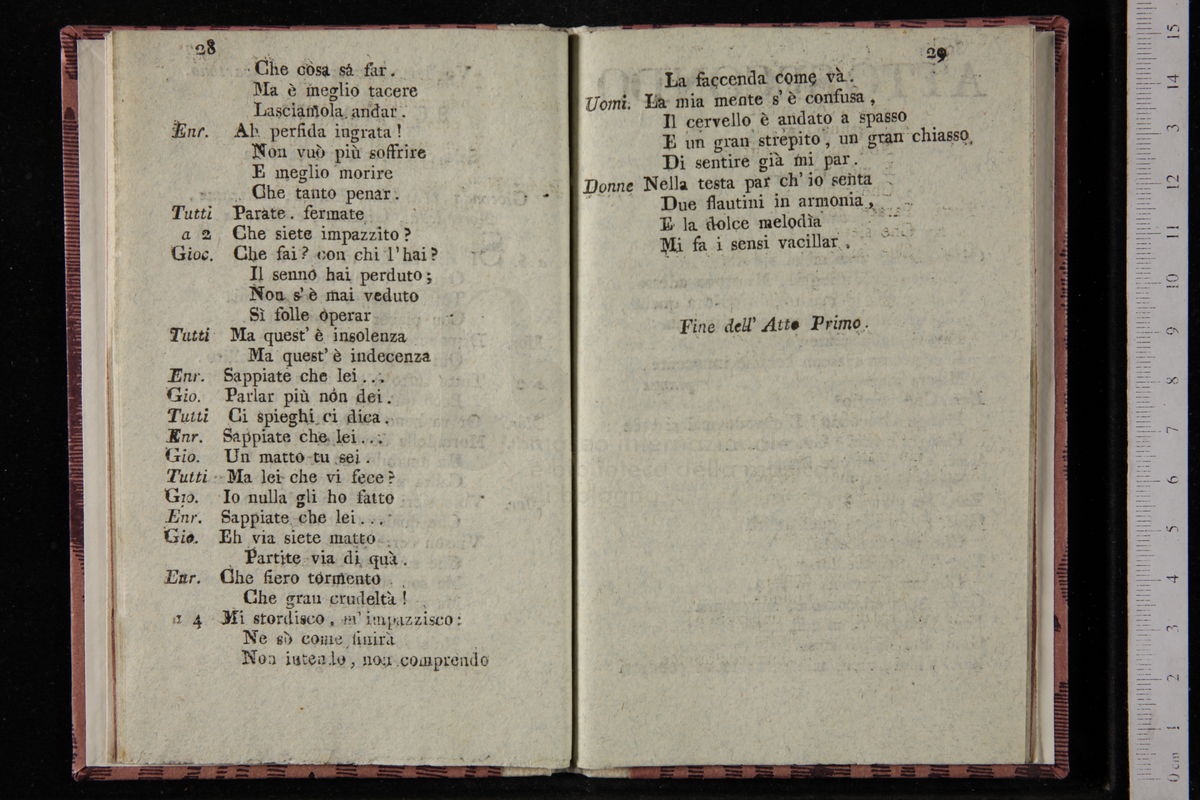 28
Che còsa sá far.
Ma è meglio tacere
Lasciamola andar.
Enr. Ah perfida ingrata!
Non vuò più soffrire
E meglio morire
Che tanto penar.
Tutti Parate. fermate
a 2 Che siete impazzito?
Gioc. Che fai? con chi l'hai?
Il senno hai perduto;
Non s'è mai veduto
Sì folle operar
Tutti Ma quest'è insolenza
Ma quest'è indecenza
Enr. Sappiate che lei...
Gio. Parlar più nòn dei.
Tutti Ci spieghi ci dica.
Enr. Sappiate che lei...
Gio. Un matto tu sei.
Tutti Ma lei che vi fece?
Gio. Io nulla gli ho fatto
Enr. Sappiate che lei...
Gio. Eh via siete matto
Partite via di quà.
Enr. Che fiero tormento
Che gran crudeltà!
a 4 Mi stordisco, m'impazzisco:
Ne sò come finirà
Non intendo, non comprendo
29
La faccenda come và.
Uomi. La mia mente s'è confusa,
Il cervello è andato a spasso
E un gran strepito, un gran chiasso
Di sentire già mi par.
Donne Nella testa par ch'io senta
Due flautini in armonia,
E la dolce melodìa
Mi fa i sensi vacillar.
Fine dell' Atto Primo.
0 cm 1 2 3 4 5 6 7 8 9 10 11 12 3 14 15